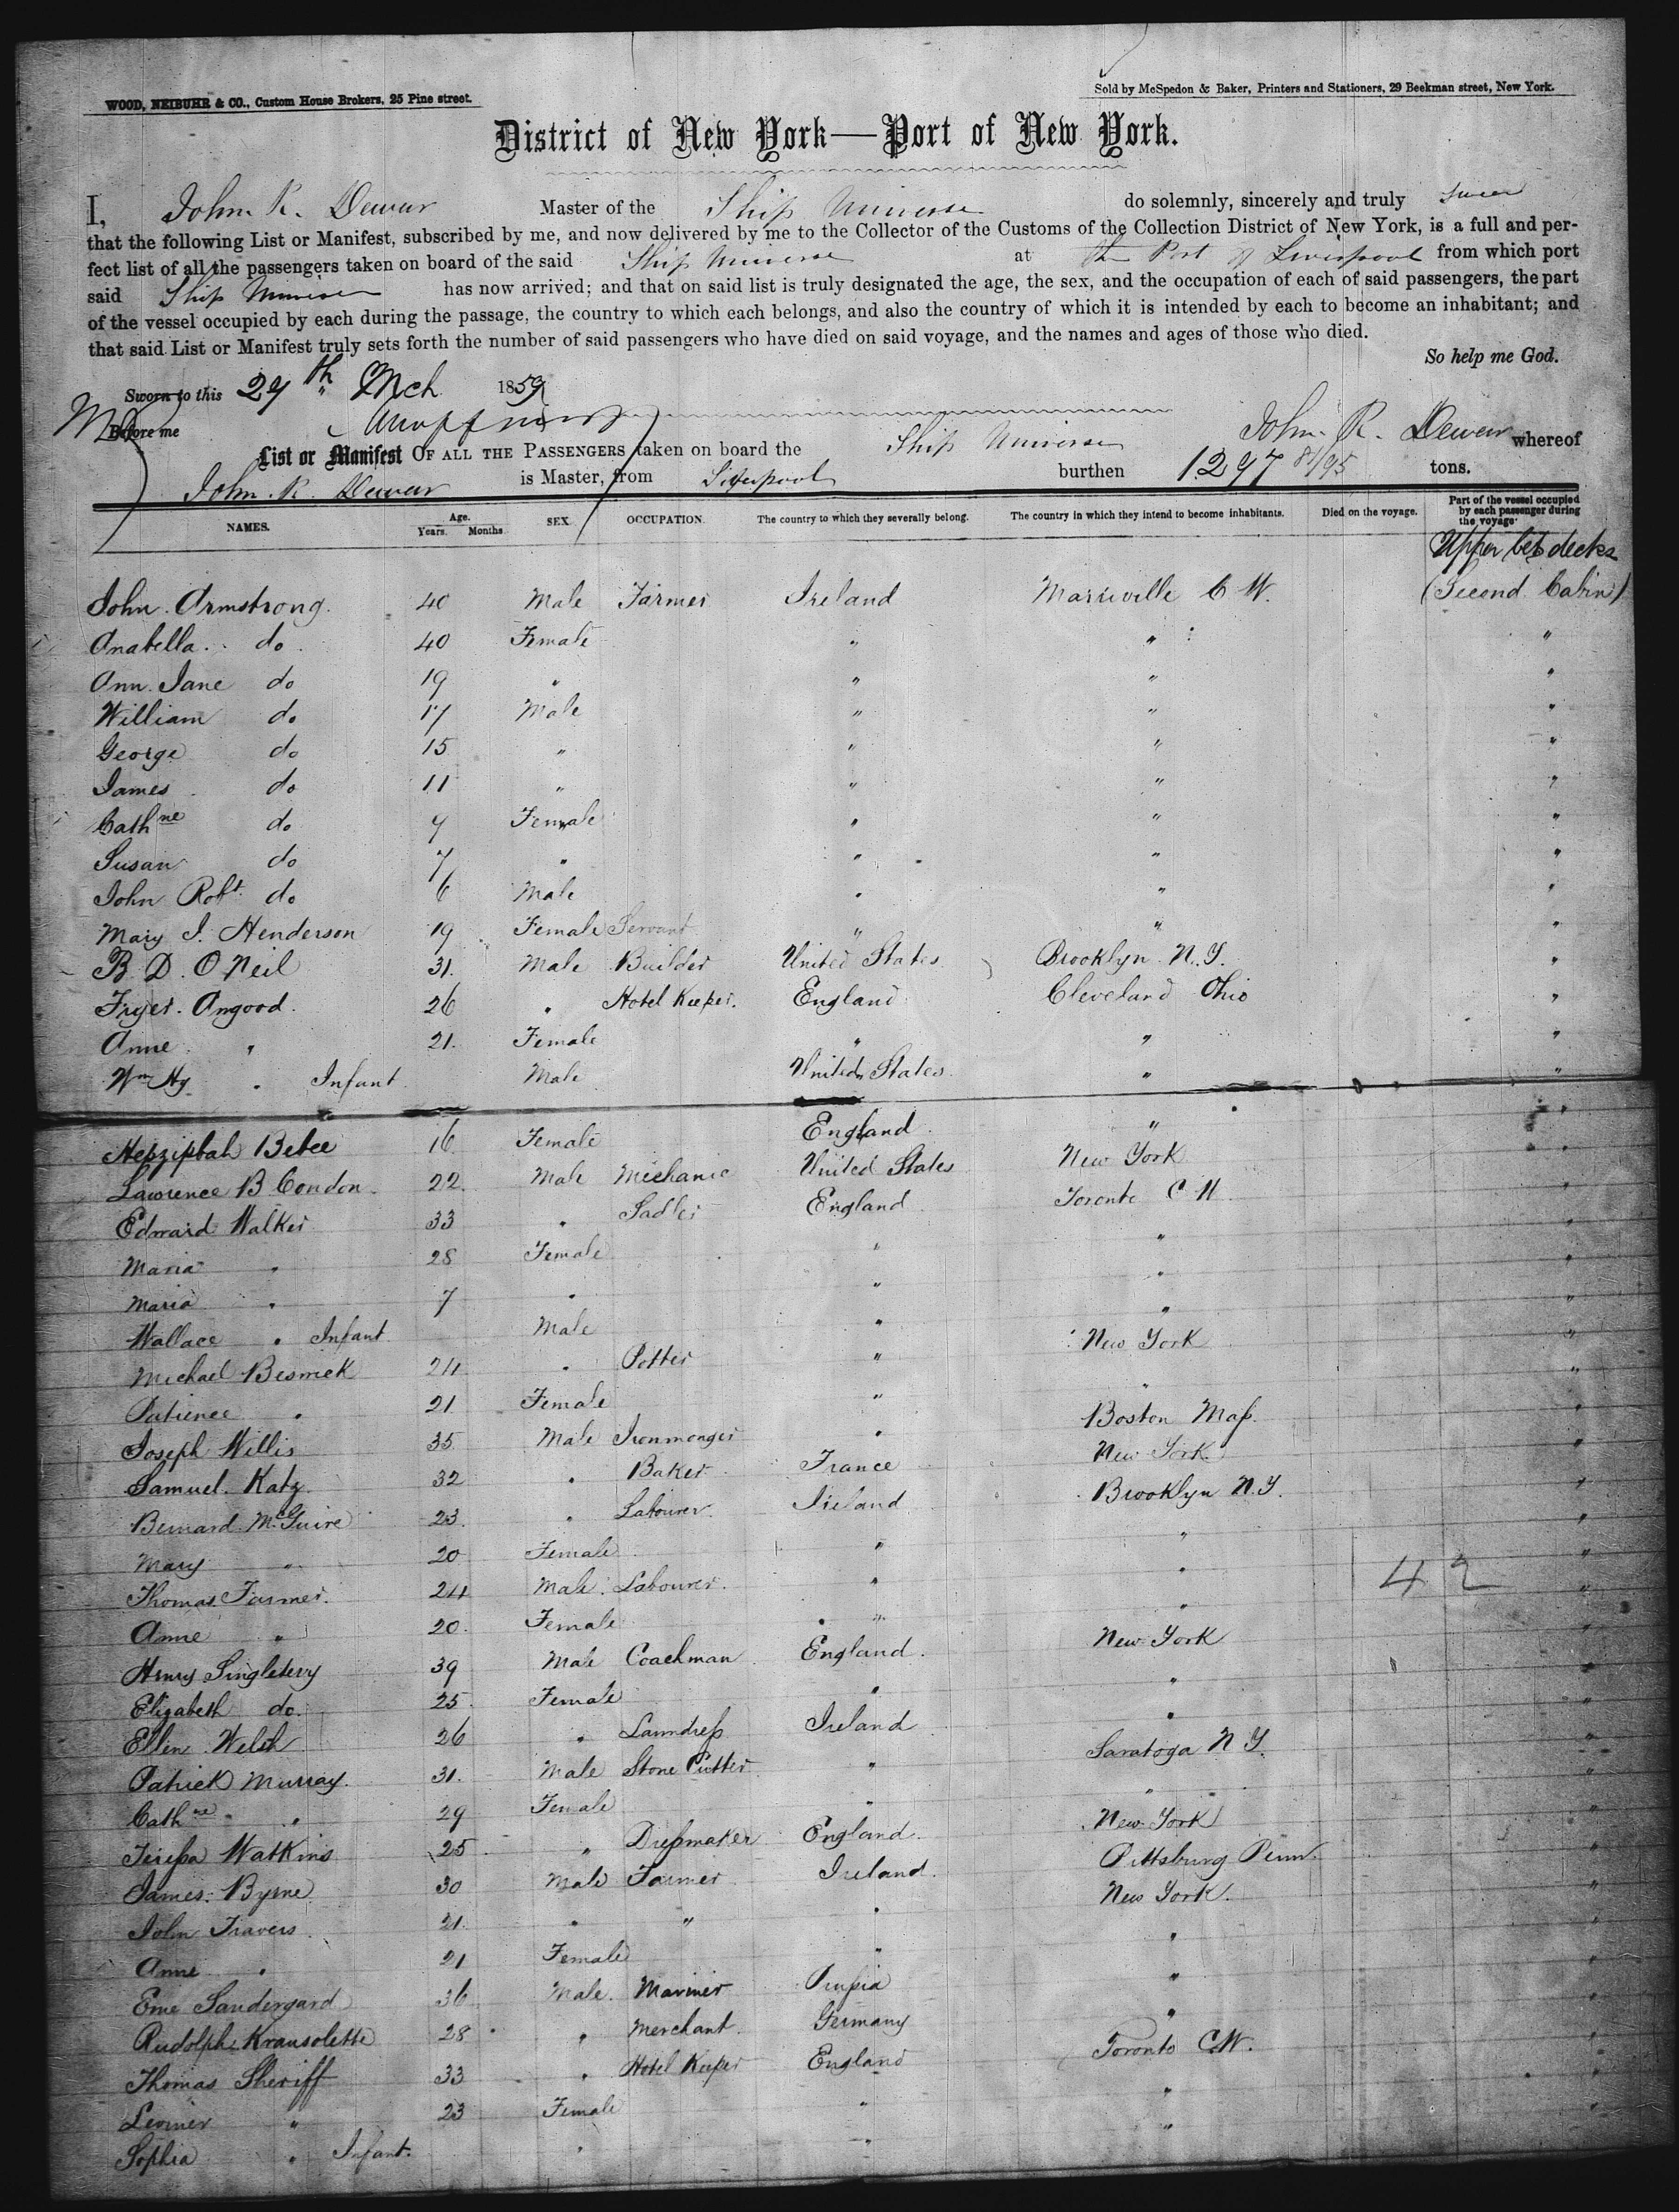 WOOD, NEIBUHR & CO., Custom House Brokers, 25 Pine street.
Sold by McSpedon & Baker, Printers and Stationers, 29 Beekman street, New York.
District of New York—Port of New York.
I, John R. Dewar Master of the Ship Universe do solemnly, sincerely and truly swear
that the following List or Manifest, subscribed by me, and now delivered by me to the Collector of the Customs of the Collection District of New York, is a full and per-
fect list of all the passengers taken on board of the said Ship Universe at the Port of Liverpool from which port
said Ship Universe has now arrived; and that on said list is truly designated the age, the sex, and the occupation of each of said passengers, the part
of the vessel occupied by each during the passage, the country to which each belongs, and also the country of which it is intended by each to become an inhabitant; and
that said List or Manifest truly sets forth the number of said passengers who have died on said voyage, and the names and ages of those who died.
So help me God.
Sworn to this 29th Mch 1859
Before me
John R. Dewar
List or Manifest OF ALL THE PASSENGERS taken on board the Ship Universe whereof
John R. Dewar is Master, from Liverpool burthen 1297 81/95 tons.
NAMES. Age. Years. Months SEX. OCCUPATION. The country to which they severally belong. The country in which they intend to become inhabitants. Died on the voyage. Part of the vessel occupied by each passenger during the voyage.
Upper bet decks
John Armstrong. 40 Male Farmer Ireland C W. (Second Cabin)
Anabella do 40 Female " " "
Ann Jane do 19 " " " "
William do 17 Male " " "
George do 15 " " " "
James do 11 " " " "
Cathne do 9 Female " " "
Susan do 7 " " " "
John Robt do 6 Male " " "
Mary J. Henderson 19 Female Servant " " "
B. D. O Neil 31. Male Builder United States Brooklyn N.Y. "
Fryer Angood 26 " Hotel Keeper. England Cleveland Ohio "
Anne " 21. Female " " "
Wm Hy " Infant Male United States " "
Hepziptah Bebee 16 Female England " "
Lawrence B Condon 22 Male Mechanic United States New York "
Edward Walker 33 " Sadler England Toronto C W "
Maria " 28 Female " " "
Maria " 7 " " " "
Wallace " Infant Male " " "
Michael Beswick 24 " Potter " New York "
Patience " 21 Female " " "
Joseph Willis 35 Male Ironmonger " Boston Mass. "
Samuel Katz 32 " Baker France New York "
Bernard McGuire 23 " Labourer Ireland Brooklyn N.Y. "
Mary " 20 Female " " "
Thomas Farmer. 24 Male Labourer. " " "
42
Anne " 20. Female " " "
Henry Singleterry 39 Male Coachman England New York "
Elizabeth do. 25 Female " " "
Ellen Welsh 26 " Laundress Ireland " "
Patrick Murray 31. Male Stone Cutter " Saratoga N Y. "
Cathne " 29 Female " " "
Teressa Watkins 25 " Dressmaker England New York "
James Byrne 30 Male Farmer Ireland Pittsburg Penn. "
John Travers 21 " " " New York. "
Anne " 21 Female " " "
Eme Sandergard 36 Male Mariner Prussia " "
Rudolph Krausolette 28 " Merchant Germany " "
Thomas Sheriff 33 " Hotel Keeper England Toronto C.W. "
" 23 Female " " "
Sophia " Infant. " " "